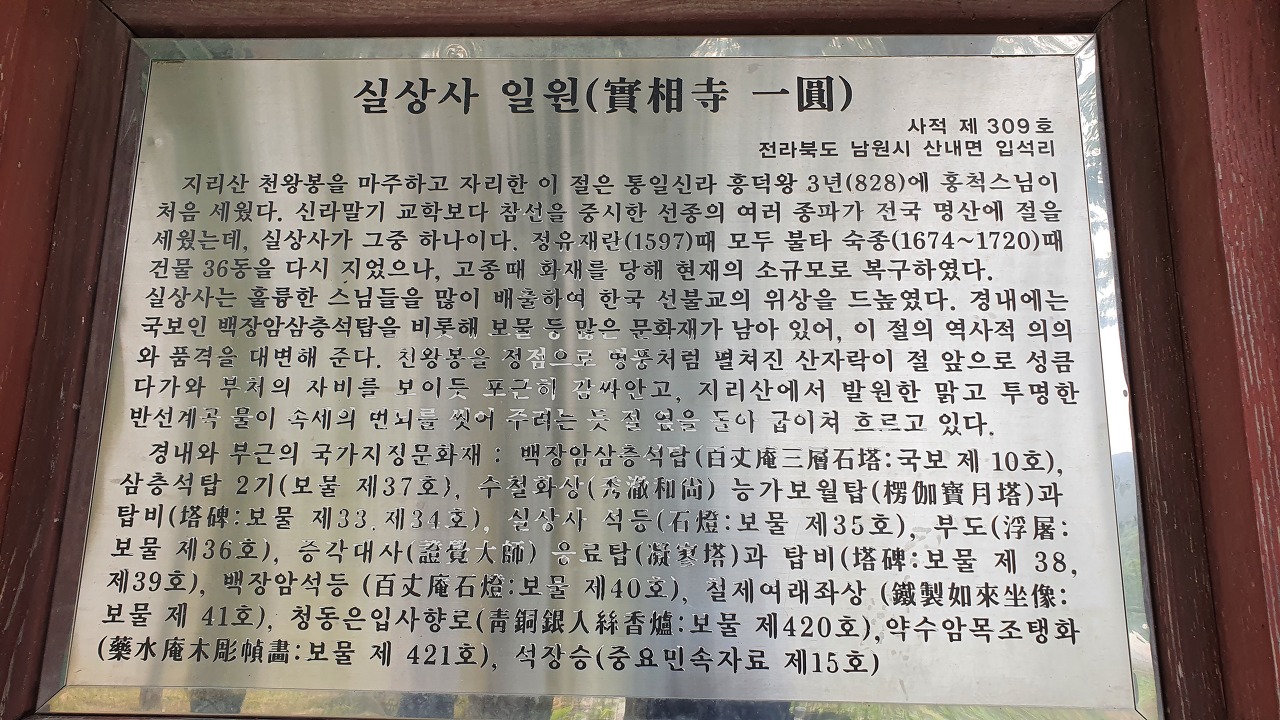 실상사 일원(實相寺 一圓)
사적 제 309호
전라북도 남원시 산내면 입석리
지리산 천왕봉을 마주하고 자리한 이 절은 통일신라 흥덕왕 3년(828)에 홍척스님이
처음 세웠다. 신라말기 교학보다 참선을 중시한 선종의 여러 종파가 전국 명산에 절을
세웠는데, 실상사가 그중 하나이다. 정유재란(1597)때 모두 불타 숙종(1674~1720)때
건물 36동을 다시 지었으나, 고종때 화재를 당해 현재의 소규모로 복구하였다.
실상사는 훌륭한 스님들을 많이 배출하여 한국 선불교의 위상을 드높였다. 경내에는
국보인 백장암삼층석탑을 비롯해 보물 등 많은 문화재가 남아 있어, 이 절의 역사적 의의
와 품격을 대변해 준다. 천왕봉을 정점으로 병풍처럼 펼쳐진 산자락이 절 앞으로 성큼
다가와 부처의 자비를 보이듯 포근히 감싸안고, 지리산에서 발원한 맑고 투명한
반선계곡 물이 속세의 번뇌를 씻어 주려는 듯 절 옆을 돌아 굽이쳐 흐르고 있다.
경내와 부근의 국가지정문화재 : 백장암삼층석탑(百丈庵三層石塔:국보 제 10호),
삼층석탑 2기(보물 제37호), 수철화상(秀澈和尙) 능가보월탑(楞伽寶月塔)과
탑비(塔碑:보물 제33. 제34호), 실상사 석등(石燈:보물 제35호), 부도(浮屠:
보물 제36호), 증각대사(證覺大師) 응료탑(凝寥塔)과 탑비(塔碑:보물 제 38,
제39호), 백장암석등 (百丈庵石燈:보물 제40호), 철제여래좌상 (鐵製如來坐像:
보물 제 41호), 청동은입사향로(靑銅銀入絲香爐:보물 제420호),약수암목조탱화
(藥水庵木彫幀畵:보물 제 421호), 석장승(중요민속자료 제15호)